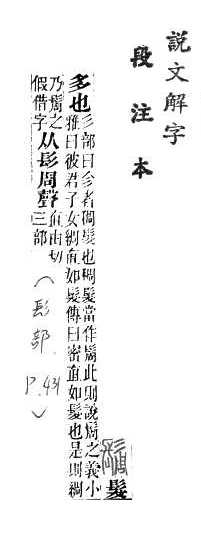 說文解字
段注本
髮
多也彡部曰㐱者稠髮也稠髮當作䯾此則說䯾之義小
雅曰彼君子女綢直如髮傳曰密直如髮也是則綢
乃䯾之
假借字从髟周聲直由切
三部
(髟部 P.431)